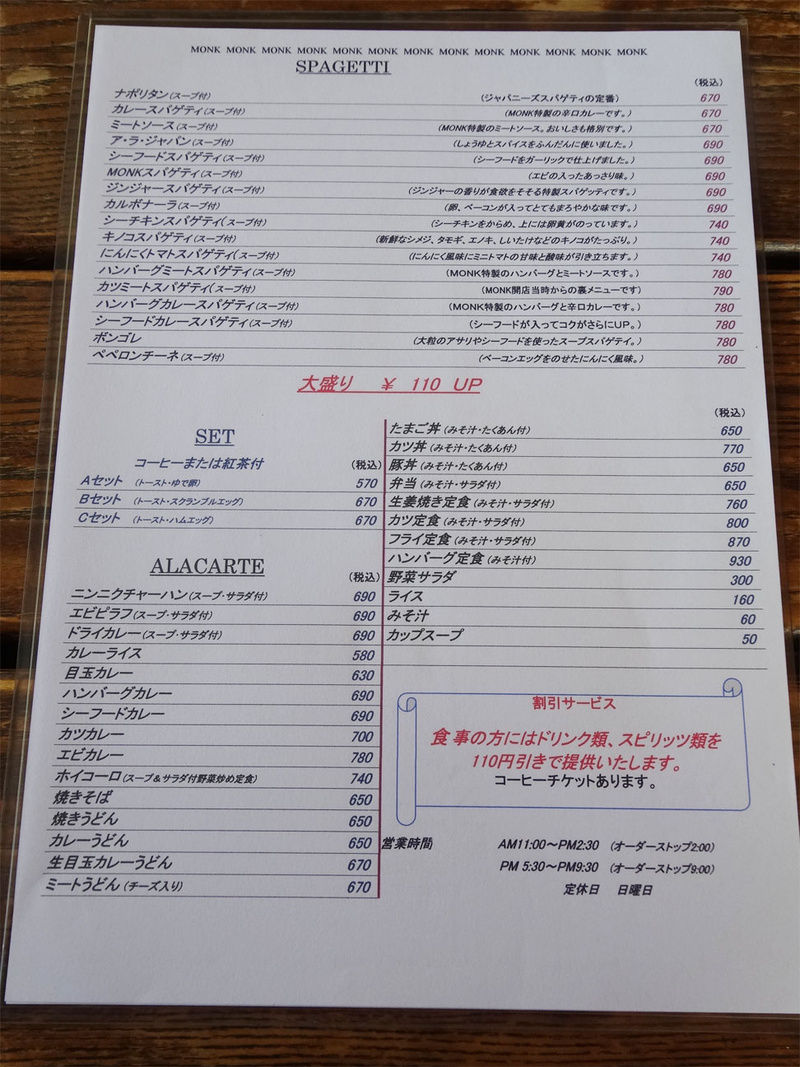 MONK MONK MONK MONK MONK MONK MONK MONK MONK MONK MONK MONK MONK
SPAGETTI
(税込)
ナポリタン(スープ付) (ジャパニーズスパゲティの定番) 670
カレースパゲティ(スープ付) (MONK特製の辛口カレーです。) 670
ミートソース(スープ付) (MONK特製のミートソース。おいしさも格別です。) 670
ア・ラ・ジャパン(スープ付) (しょうゆとスパイスをふんだんに使いました。) 690
シーフードスパゲティ(スープ付) (シーフードをガーリックで仕上げました。) 690
MONKスパゲティ(スープ付) (エビの入ったあっさり味。) 690
ジンジャースパゲティ(スープ付) (ジンジャーの香りが食欲をそそる特製スパゲッティです。) 690
カルボナーラ(スープ付) (卵、ベーコンが入ってとてもまろやかな味です。) 690
シーチキンスパゲティ(スープ付) (シーチキンをからめ、上には卵黄がのっています。) 740
キノコスパゲティ(スープ付) (新鮮なシメジ、タモギ、エノキ、しいたけなどのキノコがたっぷり。) 740
にんにくトマトスパゲティ(スープ付) (にんにく風味にミニトマトの甘味と酸味が引き立ちます。) 740
ハンバーグミートスパゲティ(スープ付) (MONK特製のハンバーグとミートソースです。) 780
カツミートスパゲティ(スープ付) (MONK開店当時からの裏メニューです) 790
ハンバーグカレースパゲティ(スープ付) (MONK特製のハンバーグと辛口カレーです。) 780
シーフードカレースパゲティ(スープ付) (シーフードが入ってコクがさらにUP。) 780
ボンゴレ (大粒のアサリやシーフードを使ったスープスパゲティ。) 780
ペペロンチーネ(スープ付) (ベーコンエッグをのせたにんにく風味。) 780
大盛り ¥ 110 UP
SET
コーヒーまたは紅茶付 (税込)
Aセット (トースト・ゆで卵) 570
Bセット (トースト・スクランブルエッグ) 670
Cセット (トースト・ハムエッグ) 670
ALACARTE
(税込)
ニンニクチャーハン(スープ・サラダ付) 690
エビピラフ(スープ・サラダ付) 690
ドライカレー(スープ・サラダ付) 690
カレーライス 580
目玉カレー 630
ハンバーグカレー 690
シーフードカレー 690
カツカレー 700
エビカレー 780
ホイコーロ(スープ&サラダ付野菜炒め定食) 740
焼きそば 650
焼きうどん 650
カレーうどん 650
生目玉カレーうどん 670
ミートうどん(チーズ入り) 670
(税込)
たまご丼(みそ汁・たくあん付) 650
カツ丼(みそ汁・たくあん付) 770
豚丼(みそ汁・たくあん付) 650
弁当(みそ汁・サラダ付) 650
生姜焼き定食(みそ汁・サラダ付) 760
カツ定食(みそ汁・サラダ付) 800
フライ定食(みそ汁・サラダ付) 870
ハンバーグ定食(みそ汁付) 930
野菜サラダ 300
ライス 160
みそ汁 60
カップスープ 50
割引サービス
食事の方にはドリンク類、スピリッツ類を
110円引きで提供いたします。
コーヒーチケットあります。
営業時間 AM11:00～PM2:30 (オーダーストップ2:00)
PM 5:30～PM9:30 (オーダーストップ9:00)
定休日 日曜日